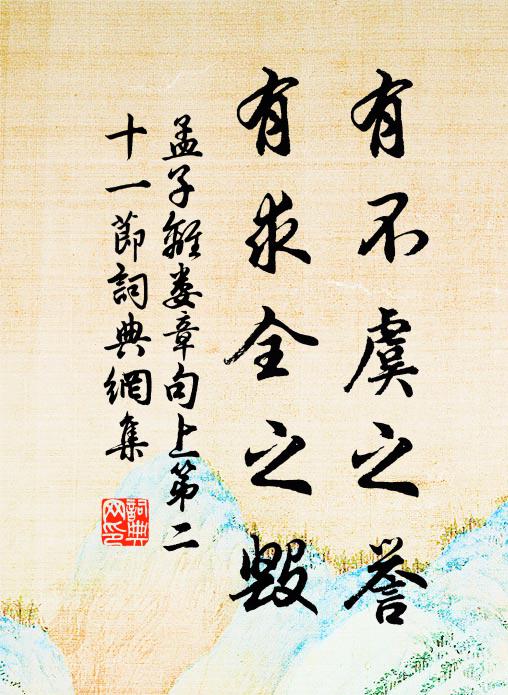 有不虞之誉
有求全之毁
孟子離娄章句上第二
十一節詞典網集
詞典
网印